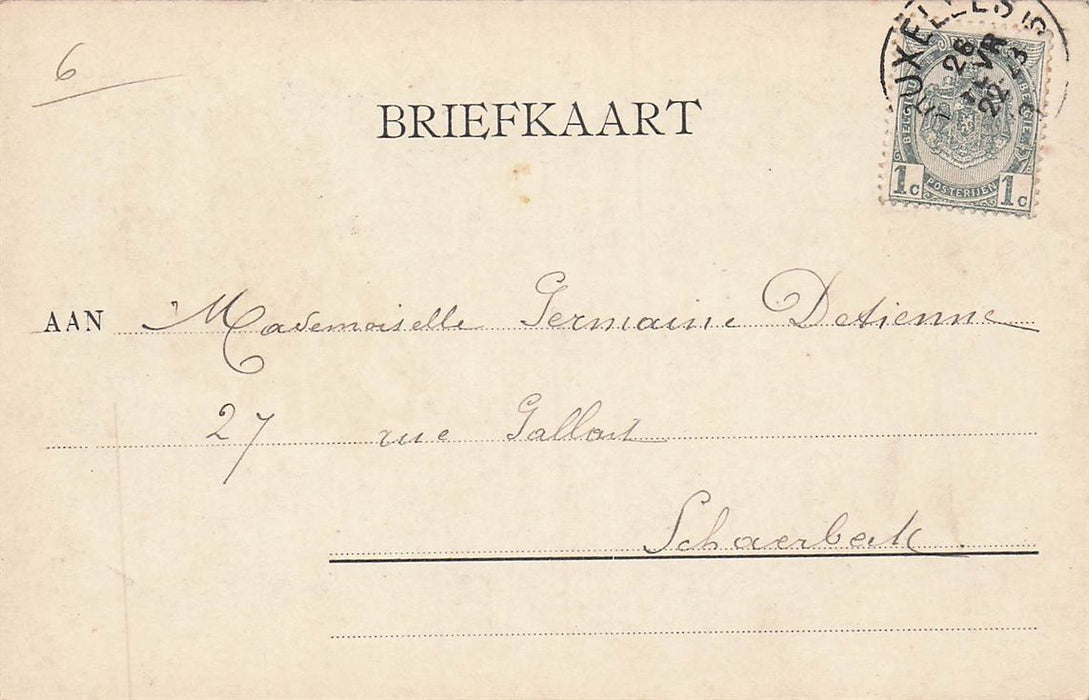 6
BRUXELLES
28
FEVR
22
BELGIE
1c POSTERIJEN 1c
BRIEFKAART
AAN Mademoiselle Germaine Detienne
27 rue Gallait
Schaerbeek